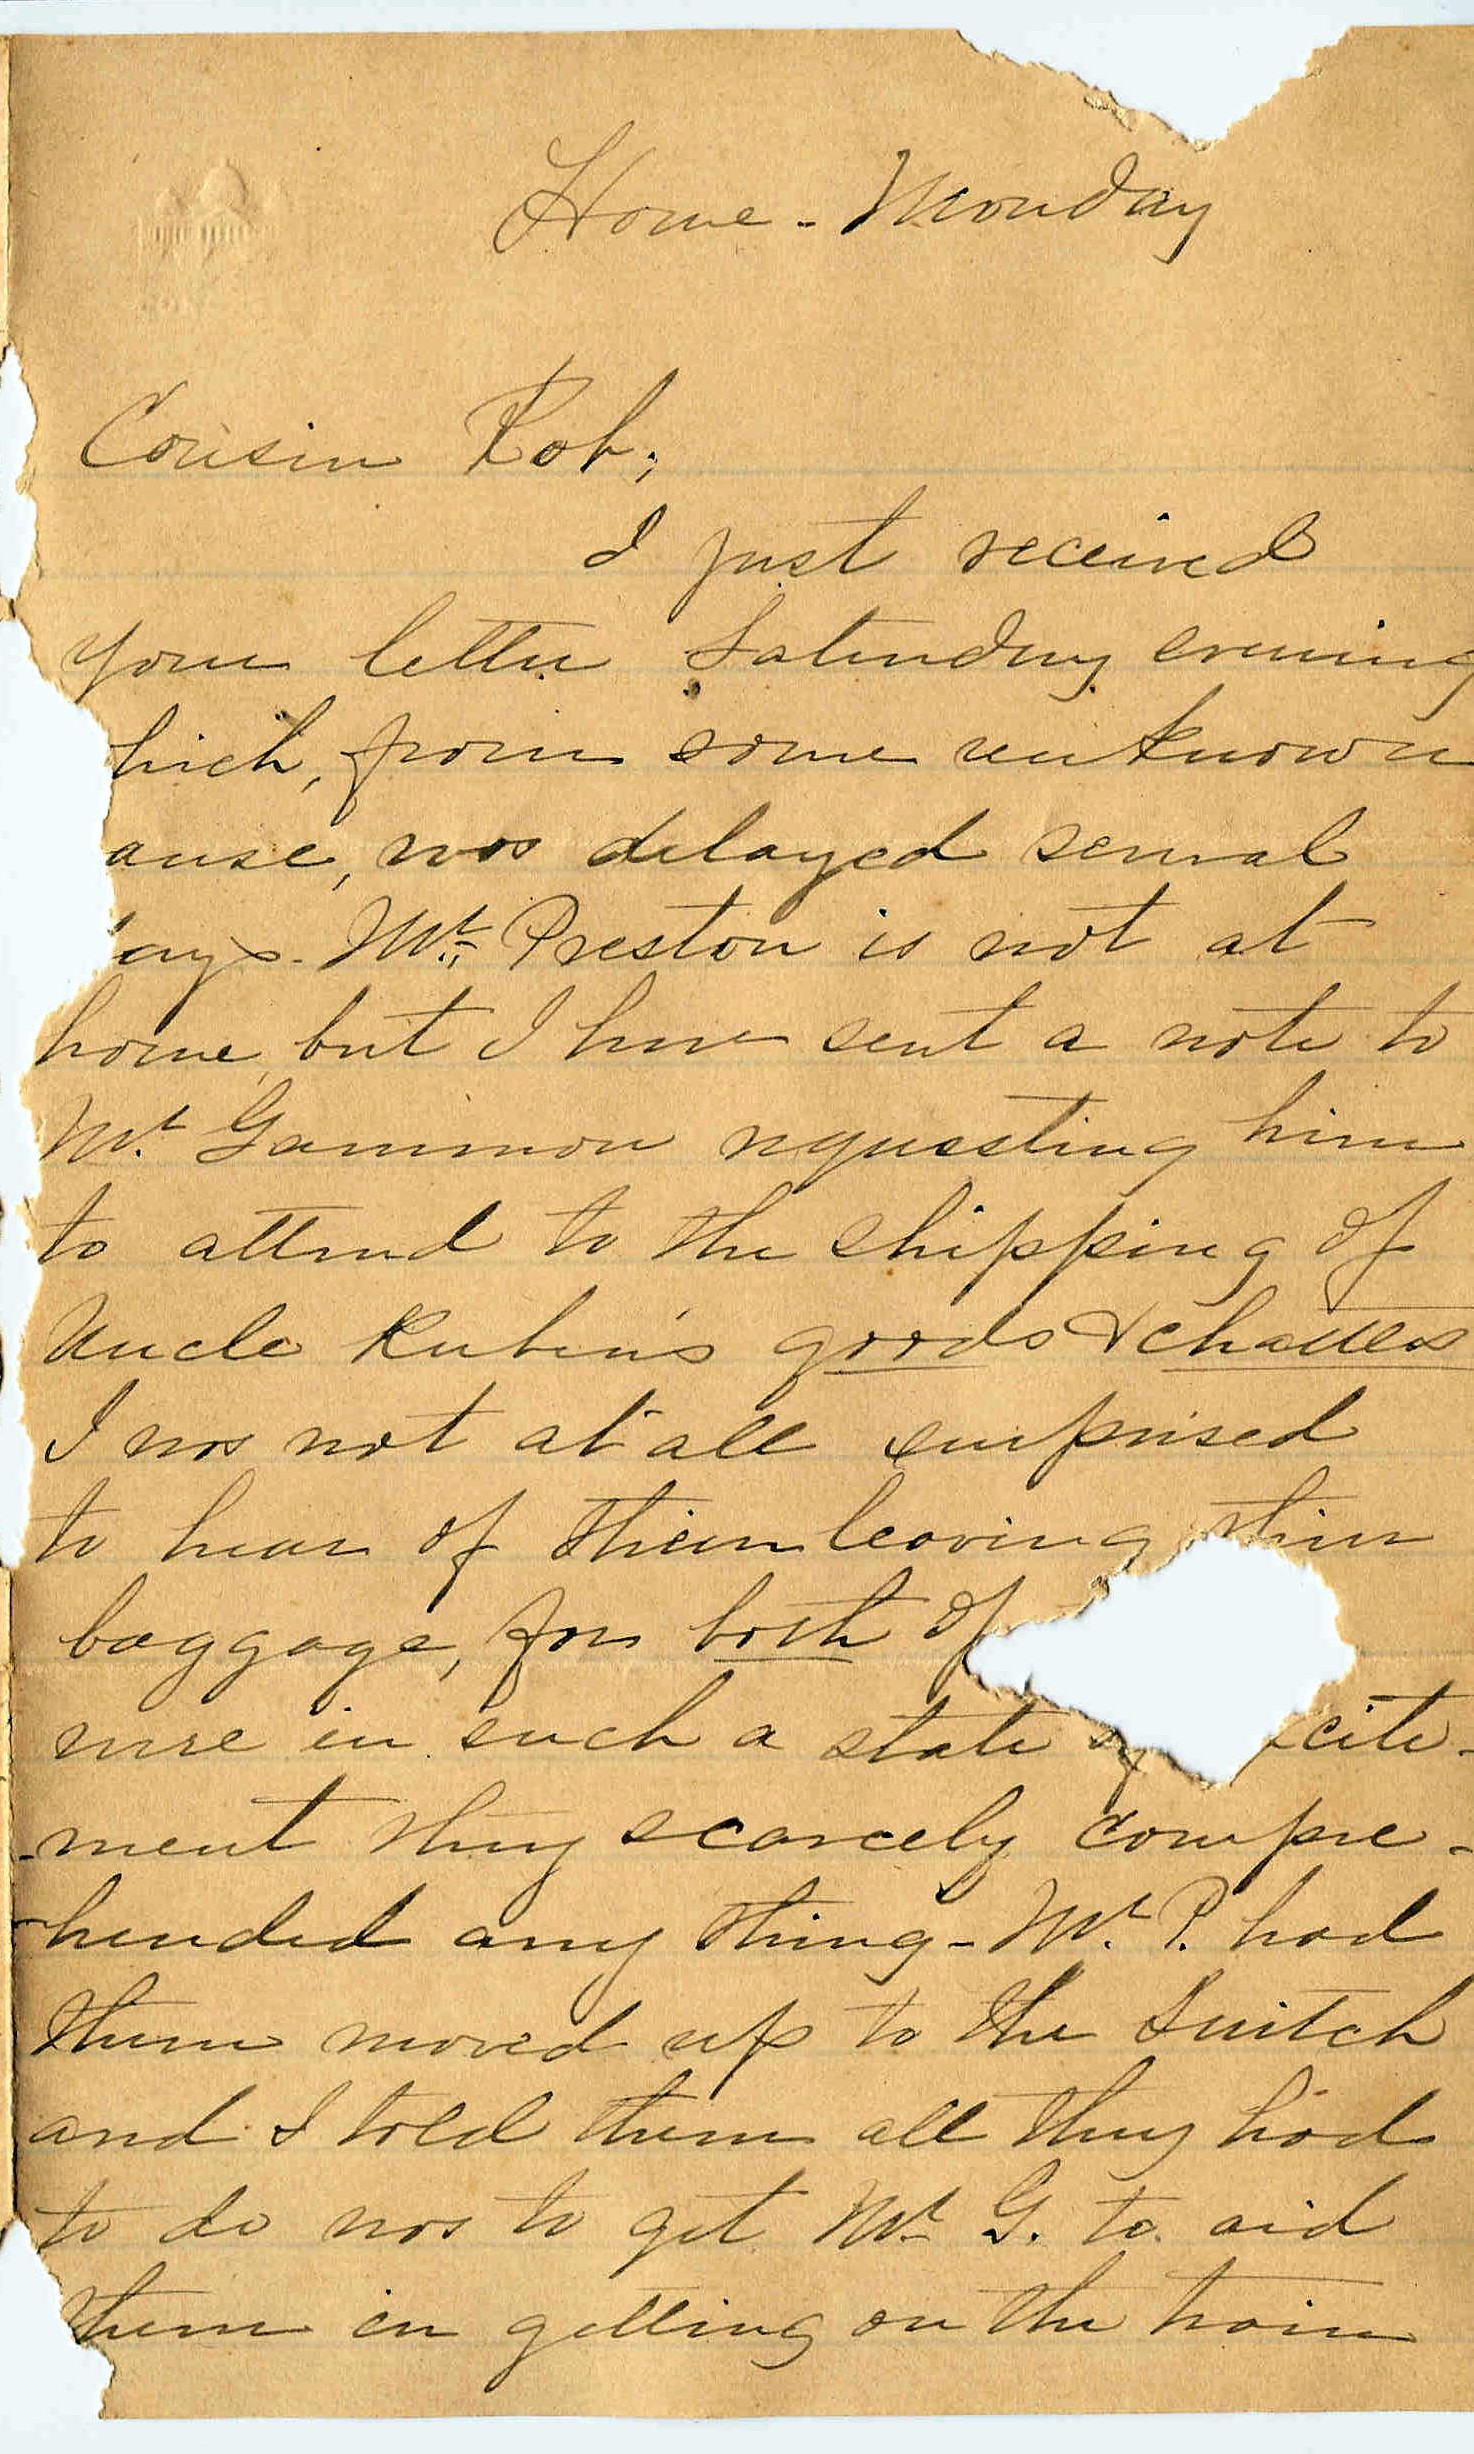 Home - Monday
Cousin Rob;
I just received
your letter Saturday evening
hich, from some unknown
ause, was delayed several
ays. Mr. Preston is not at
home, but I have sent a note to
Mr. Gammon requesting him
to attend to the shipping of
Uncle Rubin's goods & chattles
I was not at all surprised
to hear of their leaving their
baggage, for both of
were in such a state of xcite-
-ment they scarcely compre-
hended any thing - Mr. P. had
them moved up to the Switch
and I told them all they had
to do was to get Mr. G. to aid
them in getting on the train